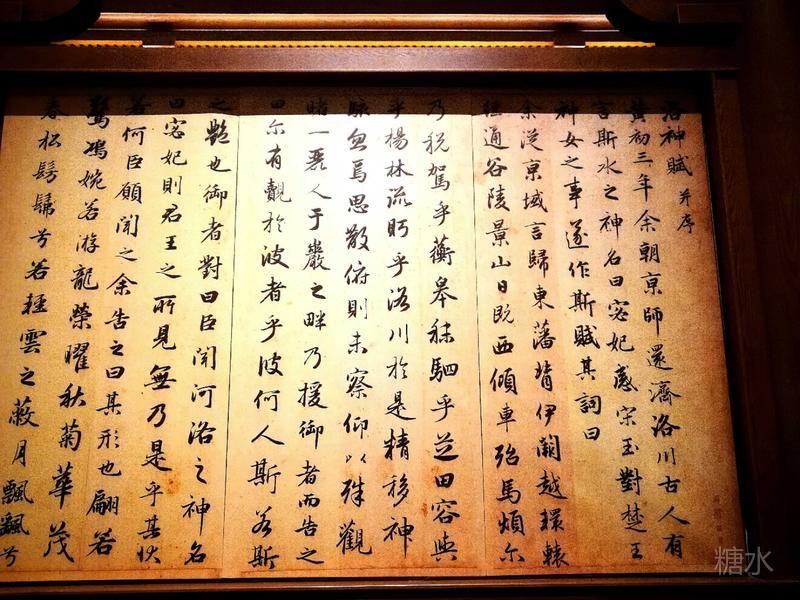 洛神賦 并序
黄初三年余朝京師還濟洛川古人有
言斯水之神名曰宓妃感宋玉對楚王
神女之事遂作斯賦其詞曰
余從京域言歸東藩背伊闕越轘轅
經通谷陵景山日既西傾車殆馬煩尔
乃税駕乎蘅皋秣駟乎芝田容與
乎楊林流眄乎洛川於是精移神
駭忽焉思散俯則未察仰以殊觀
睹一麗人于巖之畔乃援御者而告之
曰尔有覿於彼者乎彼何人斯若斯
之艷也御者對曰臣聞河洛之神名
曰宓妃則君王之所見無乃是乎其狀
若何臣願聞之余告之曰其形也翩若
驚鴻婉若游龍榮曜秋菊華茂
春松髣髴兮若輕雲之蔽月飄飄兮
糖水